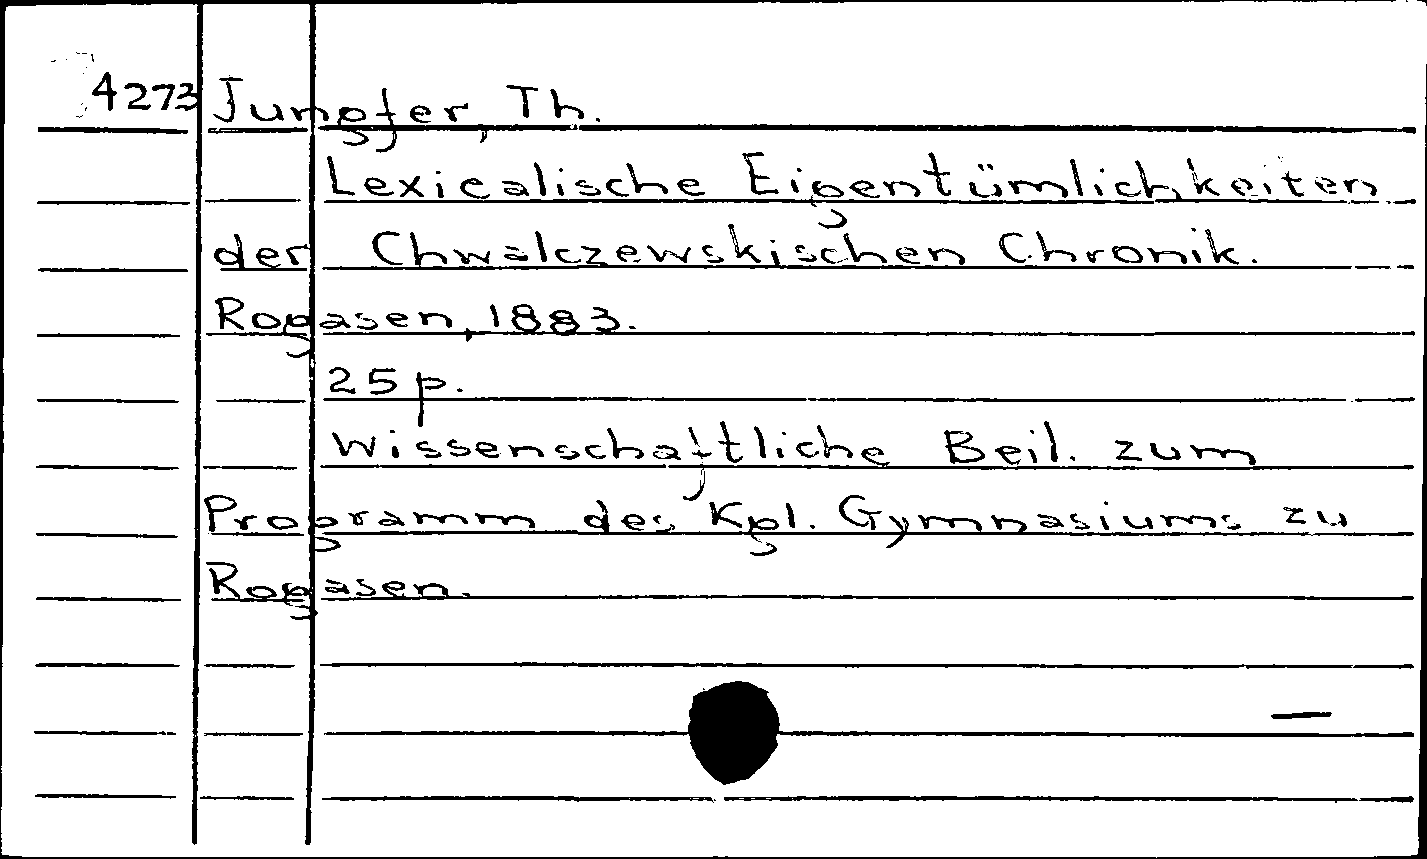 4273 Jungfer, Th.
Lexicalische Eigentümlichkeiten
der Chwalczewskischen Chronik.
Rogasen, 1883.
25 p.
Wissenschaftliche Beil. zum
Programm des Kgl. Gymnasiums zu
Rogasen.